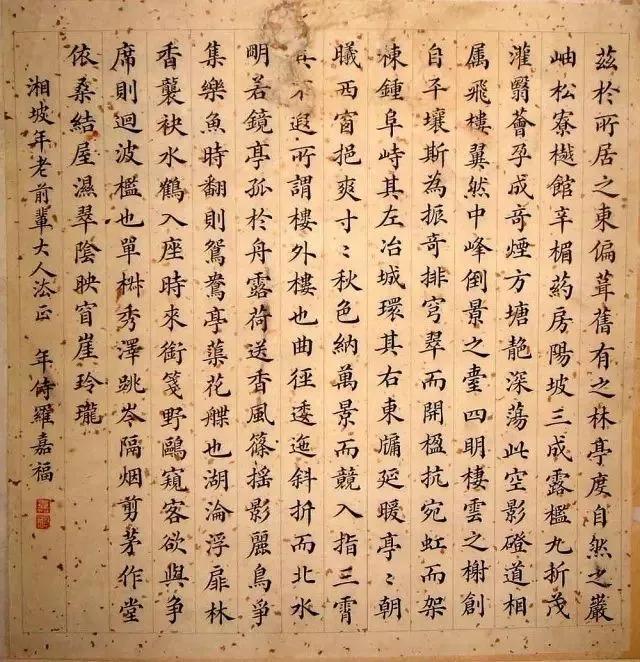 茲於所居之東偏葺舊有之林亭度自然之巖
岫松寮樾館辛楣药房陽坡三成露檻九折茂
灌翳薈孕成奇煙方塘靘深蕩此空影磴道相
属飛樓翼然中峰倒景之臺四明棲雲之榭創
自平壤斯為振奇排穹翠而開楹抗宛虹而架
棟鍾阜峙其左冶城環其右東牖延暖亭〻朝
曦西窗挹爽寸〻秋色納萬景而競入指三霄
其不遐所謂樓外樓也曲徑逶迤斜折而北水
明若鏡亭孤於舟露荷送香風篠摇影麗鳥爭
集樂魚時翻則鴛鴦亭蕖花艓也湖淪浮扉林
香襲袂水鶴入座時來銜箋野鷗窺客欲與爭
席則迴波檻也單椒秀澤跳岑隔烟剪茅作堂
依桑結屋濕翠陰映窅崖玲瓏
湘坡年老前輩大人法正 年侍羅嘉福